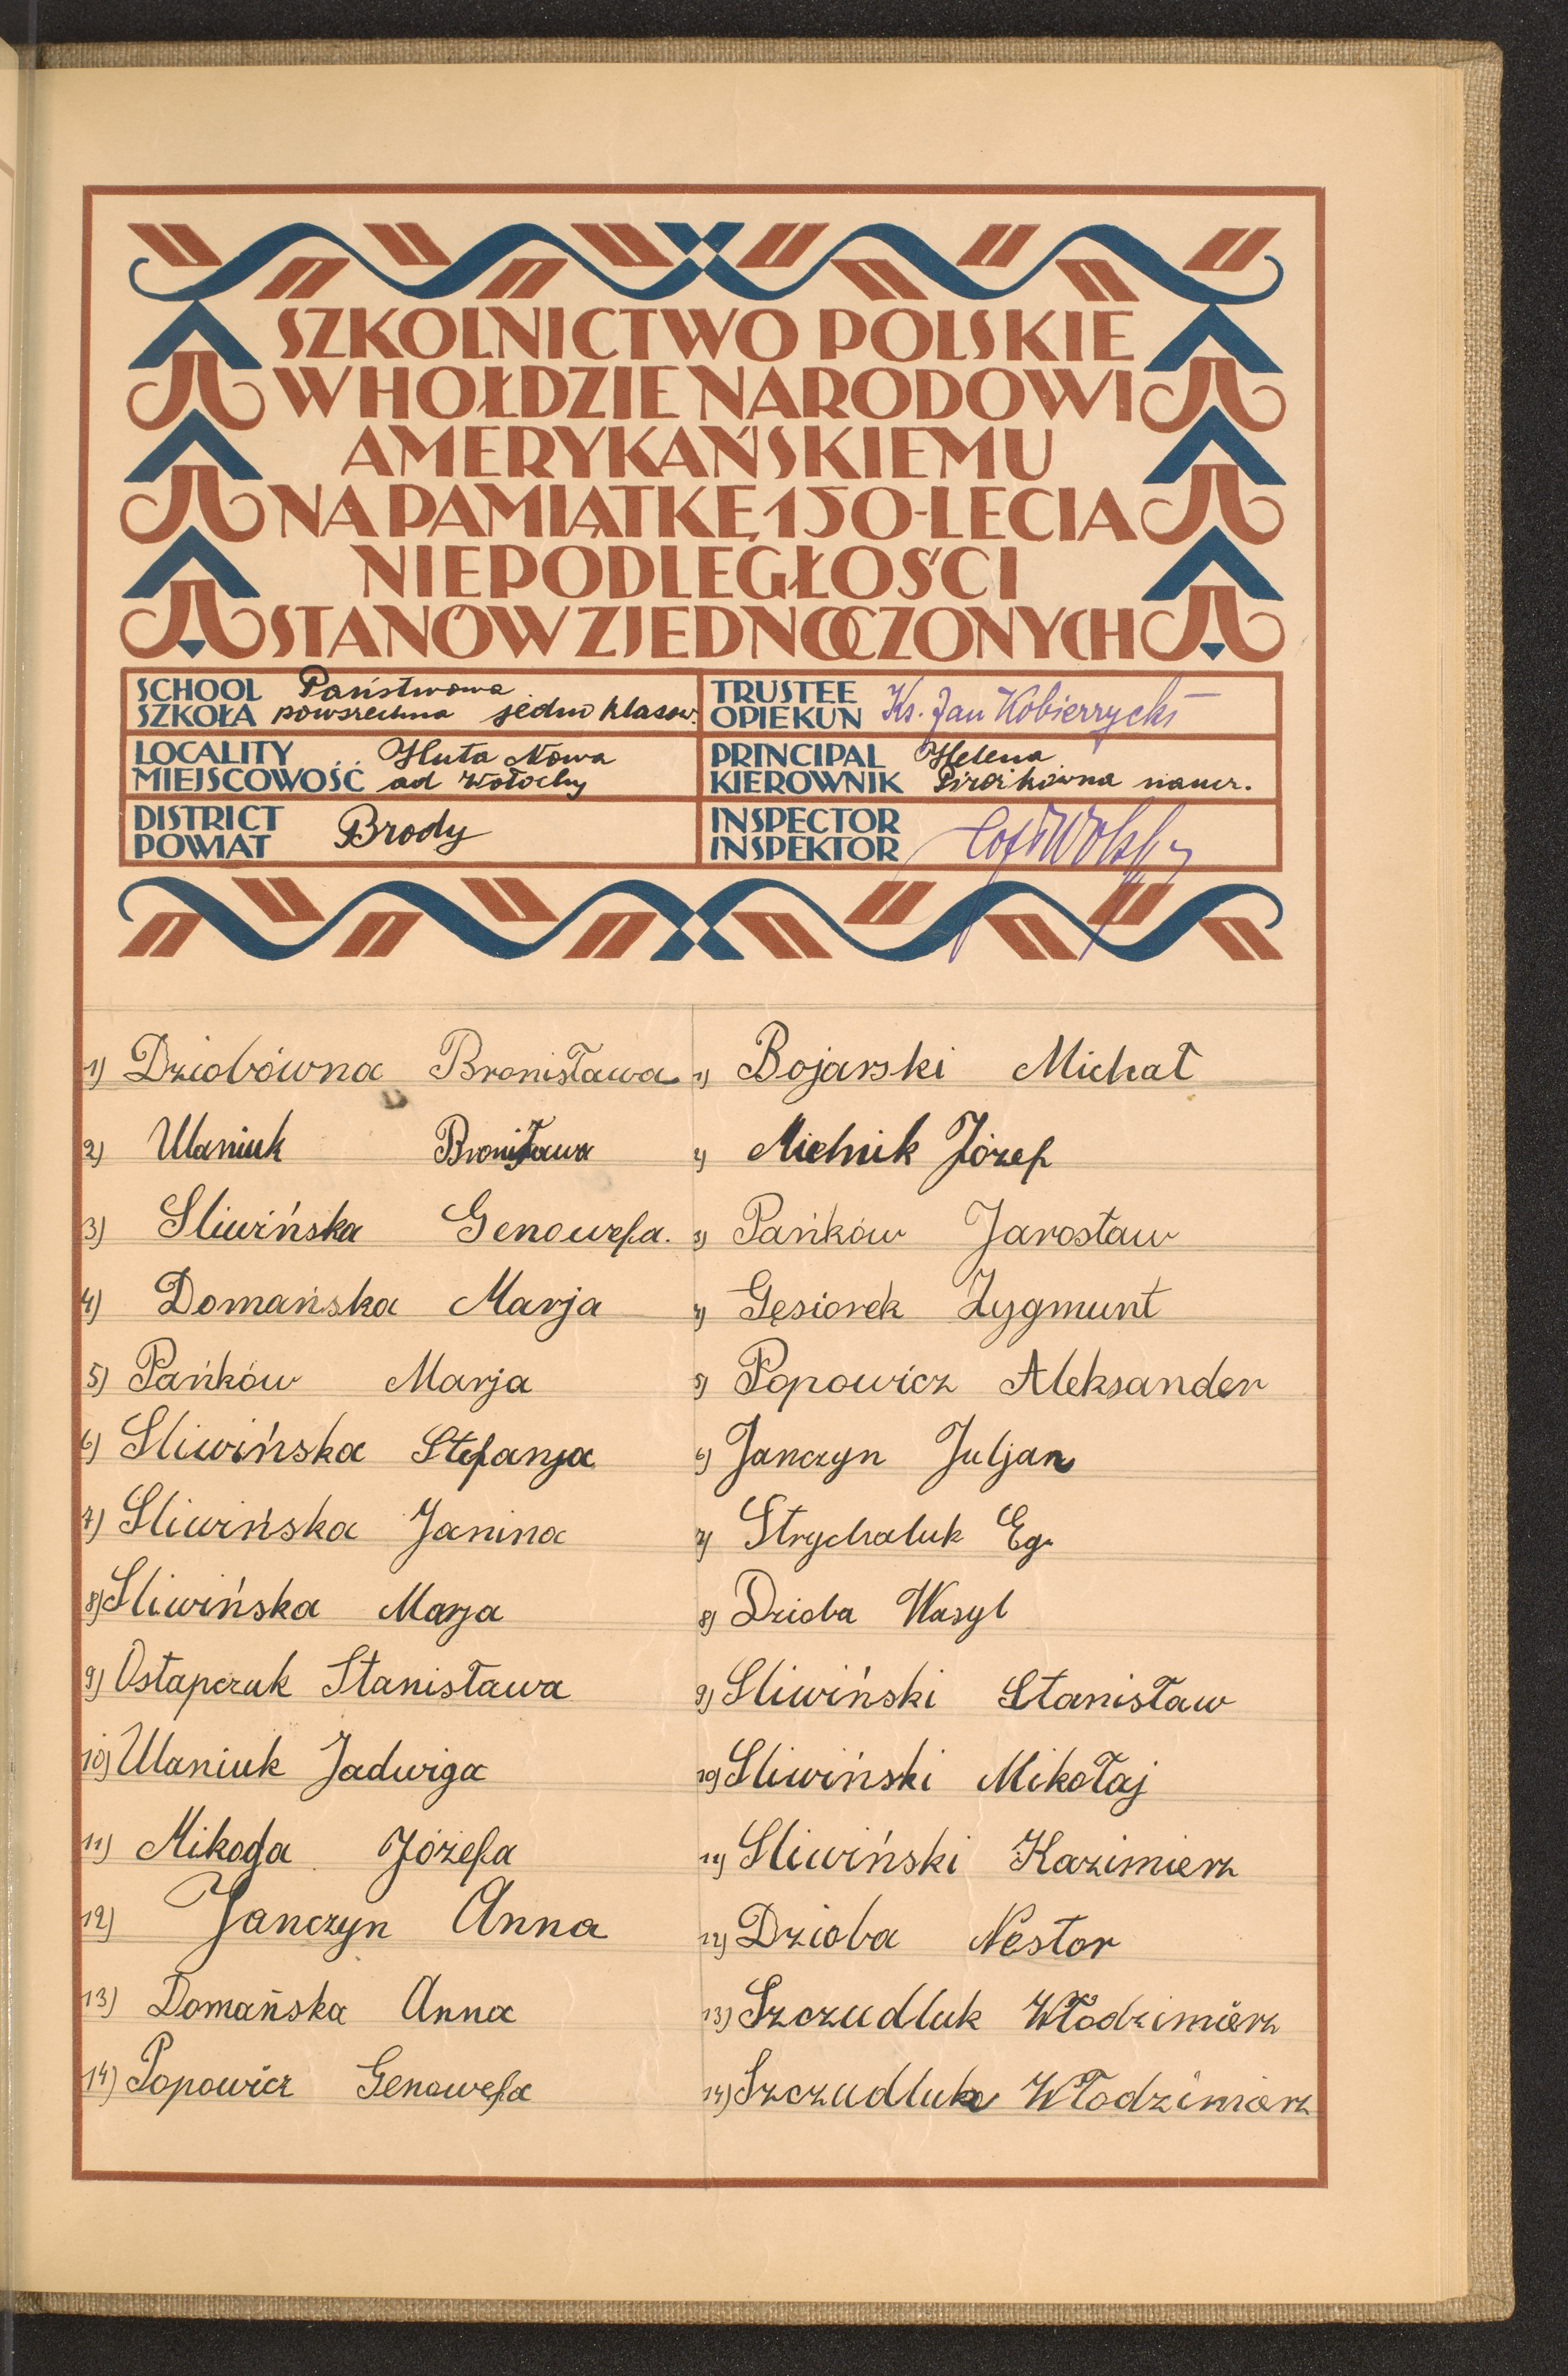 SZKOLNICTWO POLSKIE
W HOŁDZIE NARODOWI
AMERYKAŃSKIEMU
NA PAMIĄTKĘ 150-LECIA
NIEPODLEGŁOŚCI
STANÓW ZJEDNOCZONYCH
SCHOOL
SZKOŁA
Państwowa
powszechna jedno klasow.
TRUSTEE
OPIEKUN
Ks. Jan Kobierzycki
LOCALITY
MIEJSCOWOŚĆ
Huta Nowa
ad Wołochy
PRINCIPAL
KIEROWNIK
Helena
naucz.
DISTRICT
POWIAT
Brody
INSPECTOR
INSPEKTOR
1) Dziobówna Bronisława
2) Ulaniuk Bronisława
3) Sliwińska Genowefa.
4) Domańska Marja
5) Pańków Marja
6) Sliwińska Stefanja
7) Sliwińska Janina
8) Sliwińska Marja
9) Ostapczuk Stanisława
10) Ulaniuk Jadwiga
11) Józefa
12) Janczyn Anna
13) Domańska Anna
14) Popowicz Genowefa
1) Bojarski Michał
2) Mielnik Józef
3) Pańków Jarosław
4) Gęsiorek Zygmunt
5) Popowicz Aleksander
6) Janczyn Juljan
7) Strychaluk Eg.
8) Dzioba Wasyl
9) Sliwiński Stanisław
10) Sliwiński Mikołaj
11) Sliwiński Kazimierz
12) Dzioba Nestor
13) Szczudluk Włodzimierz
14) Szczudluk Włodzimierz